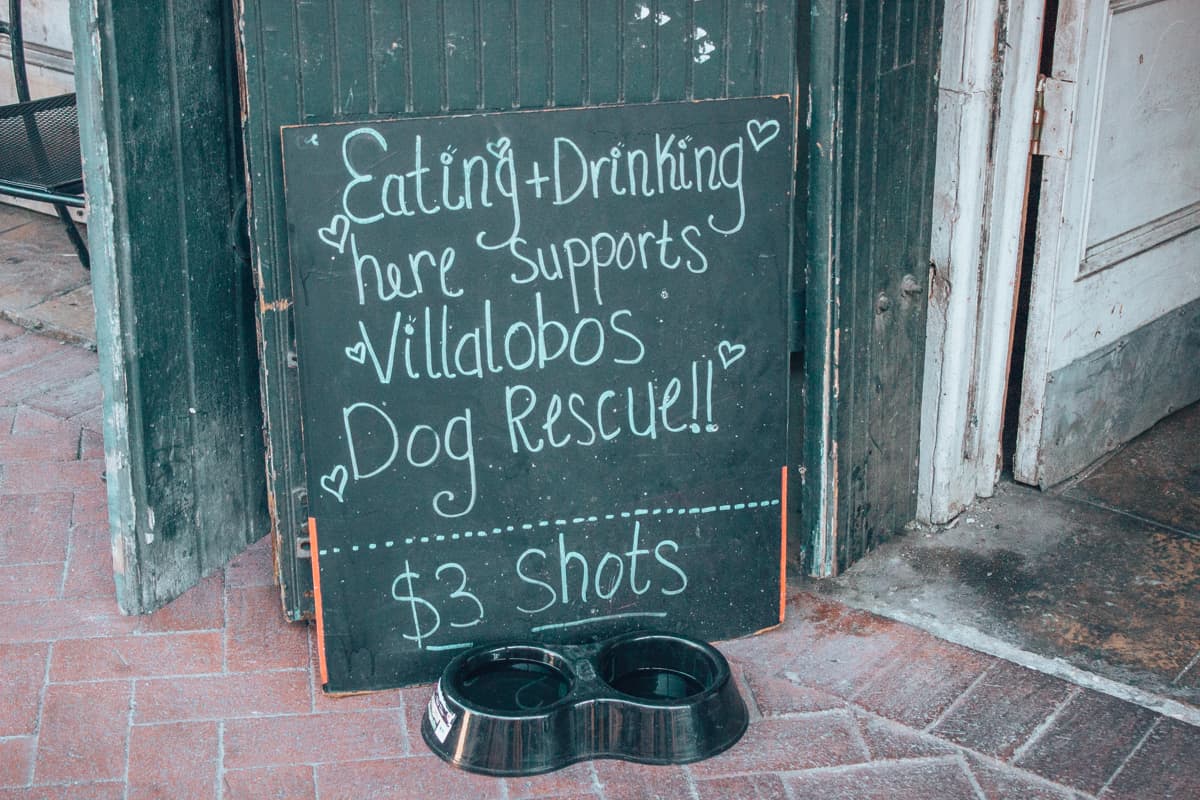 Eating + Drinking
here supports
Villalobos
Dog Rescue!!
$3 Shots